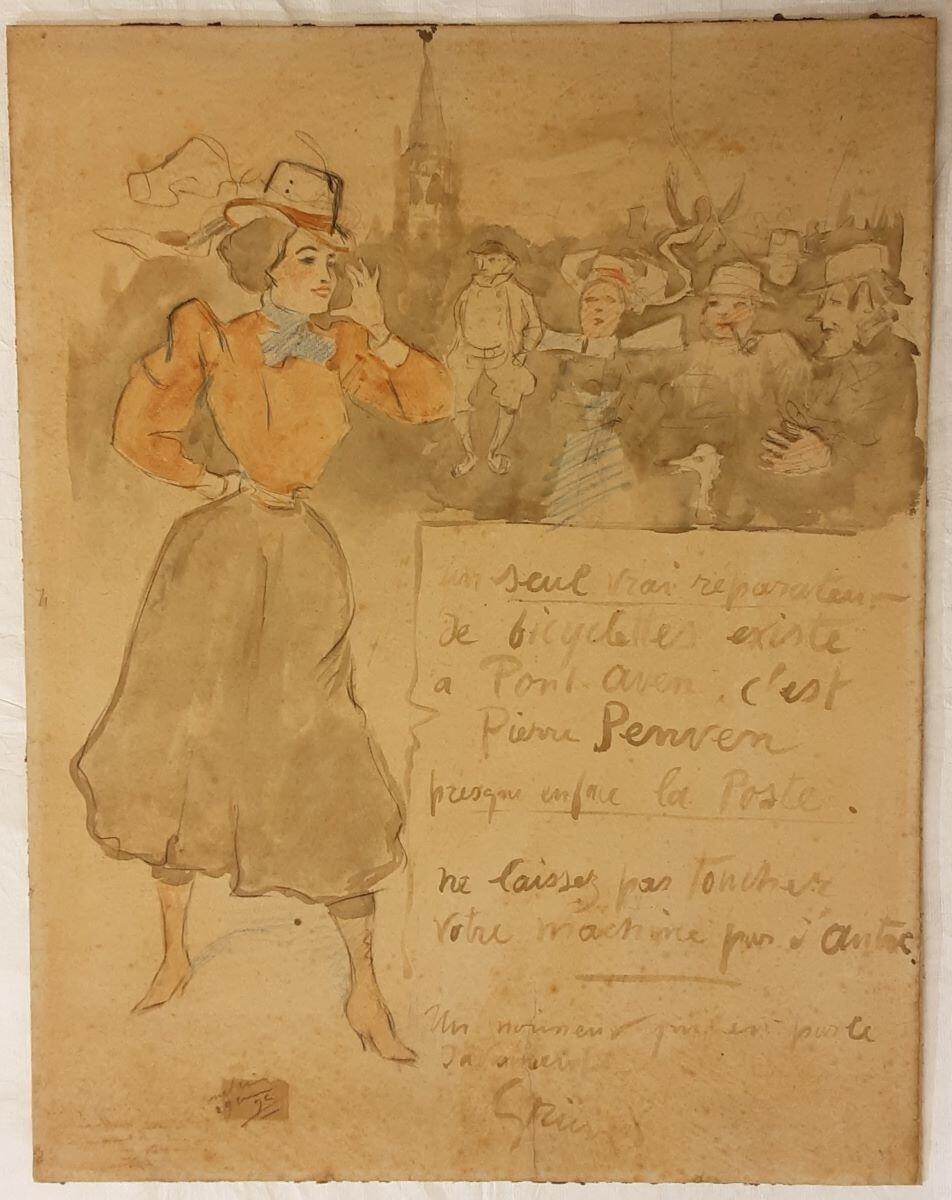 un seul vrai réparateur
de bicyclettes existe
à Pont-Aven. c'est
Pierre Penven
presqu'en face la Poste.
ne laissez pas toucher
votre machine par d'autre.
Un monsieur qui en parle
Grün
95